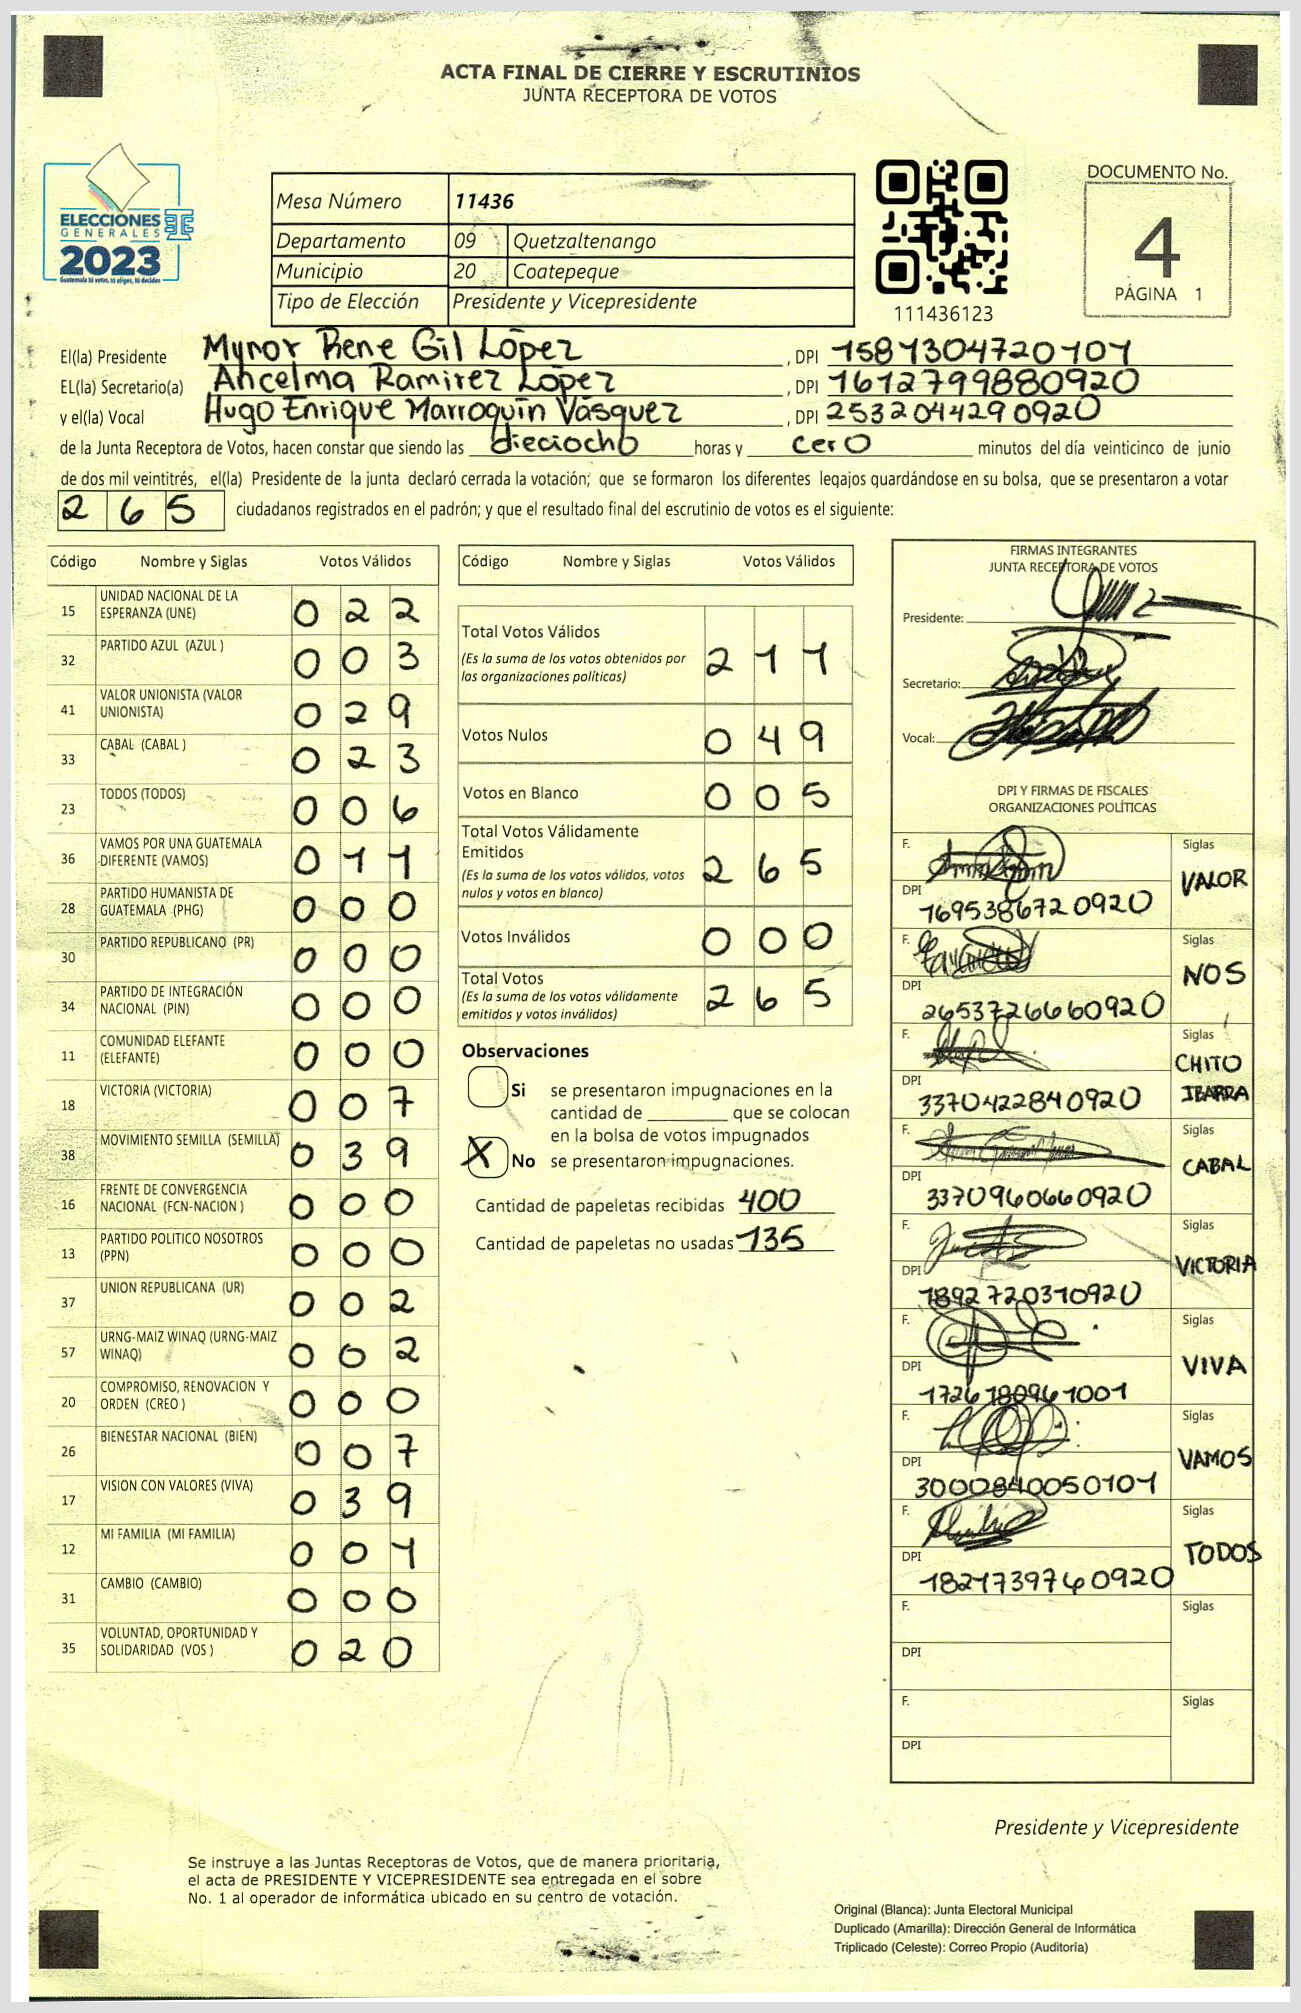 ACTA FINAL DE CIERRE Y ESCRUTINIOS
JUNTA RECEPTORA DE VOTOS
ELECCIONES
GENERALES
2023
Guatemala tú votes, tú eliges, tú decides
Mesa Número 11436
Departamento 09 Quetzaltenango
Municipio 20 Coatepeque
Tipo de Elección Presidente y Vicepresidente
111436123
DOCUMENTO No.
4
PÁGINA 1
El(la) Presidente Mynor Rene Gil López, DPI 1581304720101
EL(la) Secretario(a) Ancelma Ramirez López, DPI 1612799880920
y el(la) Vocal Hugo Enrique Marroquín Vásquez, DPI 2532044290920
de la Junta Receptora de Votos, hacen constar que siendo las dieciocho horas y cero minutos del día veinticinco de junio
de dos mil veintitrés, el(la) Presidente de la junta declaró cerrada la votación; que se formaron los diferentes legajos guardándose en su bolsa, que se presentaron a votar
265 ciudadanos registrados en el padrón; y que el resultado final del escrutinio de votos es el siguiente:
Código Nombre y Siglas Votos Válidos
15 UNIDAD NACIONAL DE LA ESPERANZA (UNE) 022
32 PARTIDO AZUL (AZUL ) 003
41 VALOR UNIONISTA (VALOR UNIONISTA) 029
33 CABAL (CABAL ) 023
23 TODOS (TODOS) 006
36 VAMOS POR UNA GUATEMALA DIFERENTE (VAMOS) 011
28 PARTIDO HUMANISTA DE GUATEMALA (PHG) 000
30 PARTIDO REPUBLICANO (PR) 000
34 PARTIDO DE INTEGRACIÓN NACIONAL (PIN) 000
11 COMUNIDAD ELEFANTE (ELEFANTE) 000
18 VICTORIA (VICTORIA) 007
38 MOVIMIENTO SEMILLA (SEMILLA) 039
16 FRENTE DE CONVERGENCIA NACIONAL (FCN-NACION ) 000
13 PARTIDO POLITICO NOSOTROS (PPN) 000
37 UNION REPUBLICANA (UR) 002
57 URNG-MAIZ WINAQ (URNG-MAIZ WINAQ) 002
20 COMPROMISO, RENOVACION Y ORDEN (CREO ) 000
26 BIENESTAR NACIONAL (BIEN) 007
17 VISION CON VALORES (VIVA) 039
12 MI FAMILIA (MI FAMILIA) 001
31 CAMBIO (CAMBIO) 000
35 VOLUNTAD, OPORTUNIDAD Y SOLIDARIDAD (VOS ) 020
Código Nombre y Siglas Votos Válidos
Total Votos Válidos 211
(Es la suma de los votos obtenidos por
las organizaciones políticas)
Votos Nulos 049
Votos en Blanco 005
Total Votos Válidamente
Emitidos 265
(Es la suma de los votos válidos, votos
nulos y votos en blanco)
Votos Inválidos 000
Total Votos 265
(Es la suma de los votos válidamente
emitidos y votos inválidos)
Observaciones
Si se presentaron impugnaciones en la
cantidad de ________ que se colocan
en la bolsa de votos impugnados
X No se presentaron impugnaciones.
Cantidad de papeletas recibidas 400
Cantidad de papeletas no usadas 135
FIRMAS INTEGRANTES
JUNTA RECEPTORA DE VOTOS
Presidente:
Secretario:
Vocal:
DPI Y FIRMAS DE FISCALES
ORGANIZACIONES POLÍTICAS
F. Siglas
VALOR
DPI 1695386720920
F. Siglas
NOS
DPI 2653726660920
F. Siglas
CHITO
IBARRA
DPI 3370422840920
F. Siglas
CABAL
DPI 3370960660920
F. Siglas
VICTORIA
DPI 1892720310920
F. Siglas
VIVA
DPI 1726180961001
F. Siglas
VAMOS
DPI 3000840050101
F. Siglas
TODOS
DPI 1821739760920
F. Siglas
DPI
F. Siglas
DPI
Presidente y Vicepresidente
Se instruye a las Juntas Receptoras de Votos, que de manera prioritaria,
el acta de PRESIDENTE Y VICEPRESIDENTE sea entregada en el sobre
No. 1 al operador de informática ubicado en su centro de votación.
Original (Blanca): Junta Electoral Municipal
Duplicado (Amarilla): Dirección General de Informática
Triplicado (Celeste): Correo Propio (Auditoría)